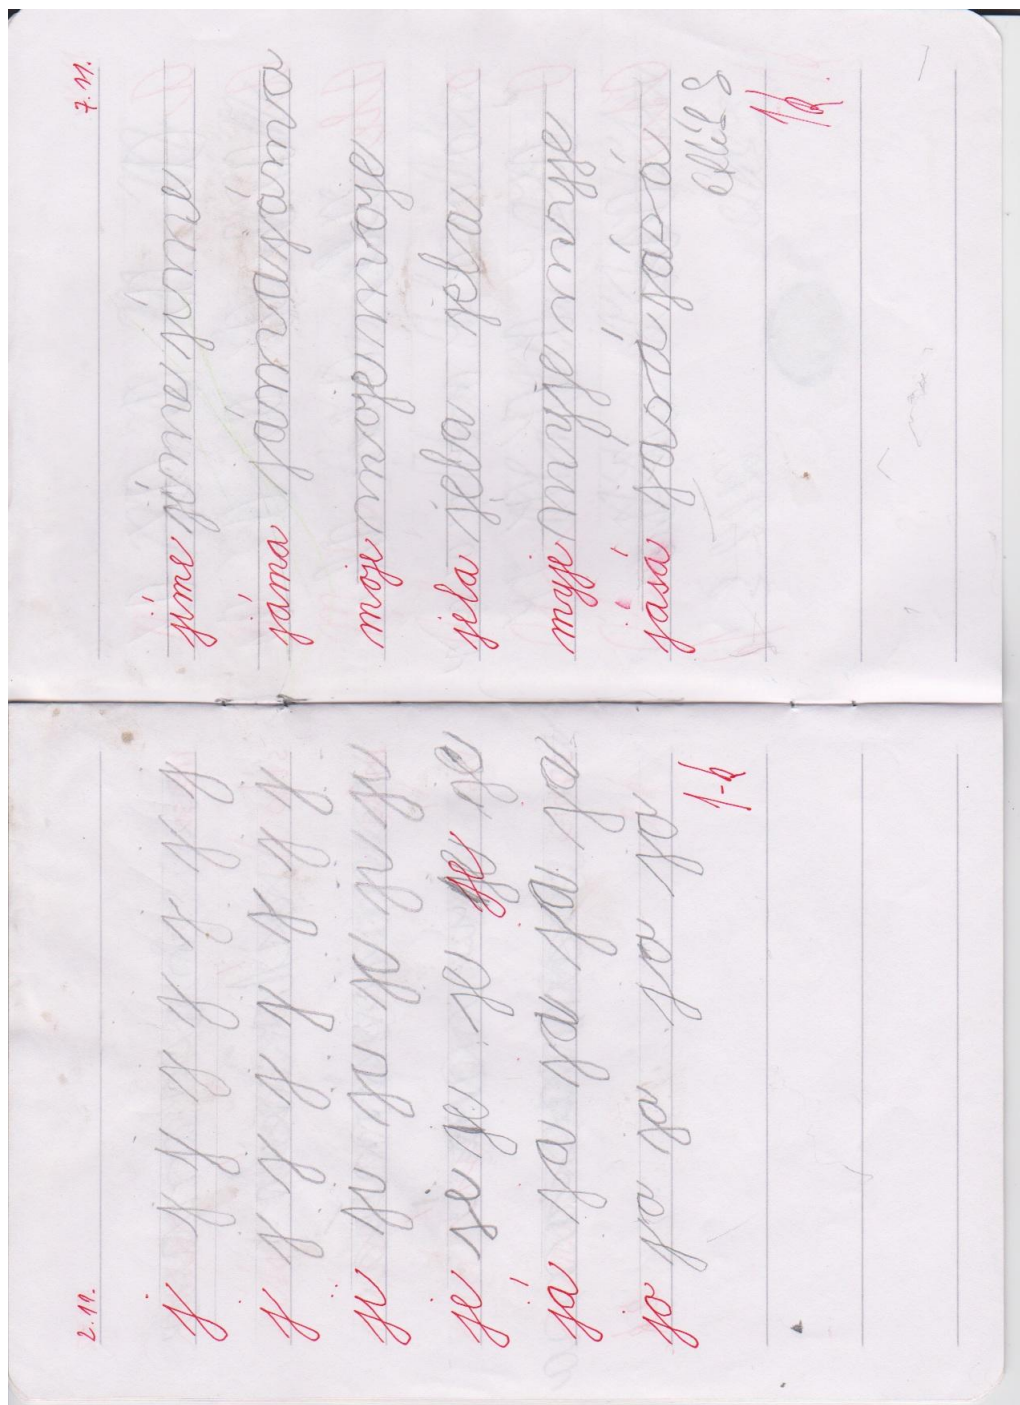 2.11.
j j j j j j j j
j j j j j j j j
ji ji ji ji ji ji
je je je je je je
já ja ja ja ja
jo jo jo jo jo
7.11.
jíme jíme jíme
jáma jáma jáma
moje moje moje
jela jela jela
myje myje myje
jásá jásá jásá